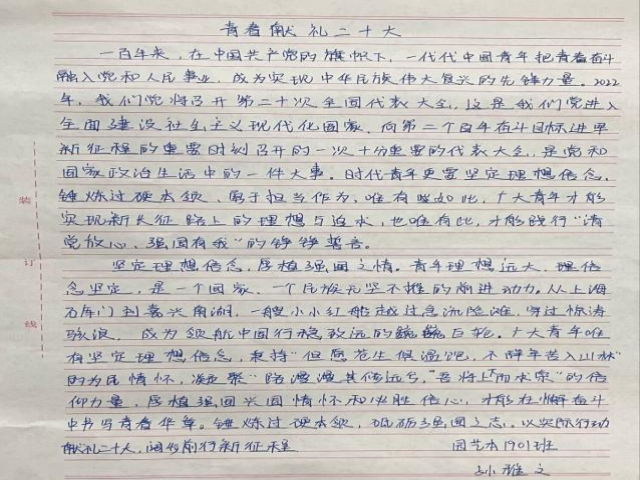 青春献礼二十大
一百年来，在中国共产党的旗帜下，一代代中国青年把青春奋斗
融入党和人民事业，成为实现中华民族伟大复兴的先锋力量。2022
年，我们党将召开第二十次全国代表大会，这是我们党进入
全面建设社会主义现代化国家、向第二个百年奋斗目标进军
新征程的重要时刻召开的一次十分重要的代表大会，是党和
国家政治生活中的一件大事。时代青年更要坚定理想信念，
锤炼过硬本领，勇于担当作为，唯有如此，广大青年才能
实现新长征路上的理想与追求，也唯有此，才能践行“请
党放心，强国有我”的铮铮誓言。
坚定理想信念，厚植强国之情。青年理想远大、理信
念坚定，是一个国家、一个民族无坚不摧的前进动力。从上海
石库门到嘉兴南湖，一艘小小红船越过急流险滩，穿过惊涛
骇浪，成为领航中国行稳致远的巍巍巨轮。广大青年唯
有坚定理想信念，秉持“但愿苍生俱温饱，不辞辛苦入山林”
的为民情怀，凝聚“路漫漫其修远兮，吾将上下而求索”的信
仰力量，厚植强国兴国情怀和必胜信心，才能在懈奋斗
中书写青春华章。锤炼过硬本领，砥砺强国之志。以实际行动
献礼二十大，阔步前行新征程
园艺本1901班
孙雅文
装
订
线